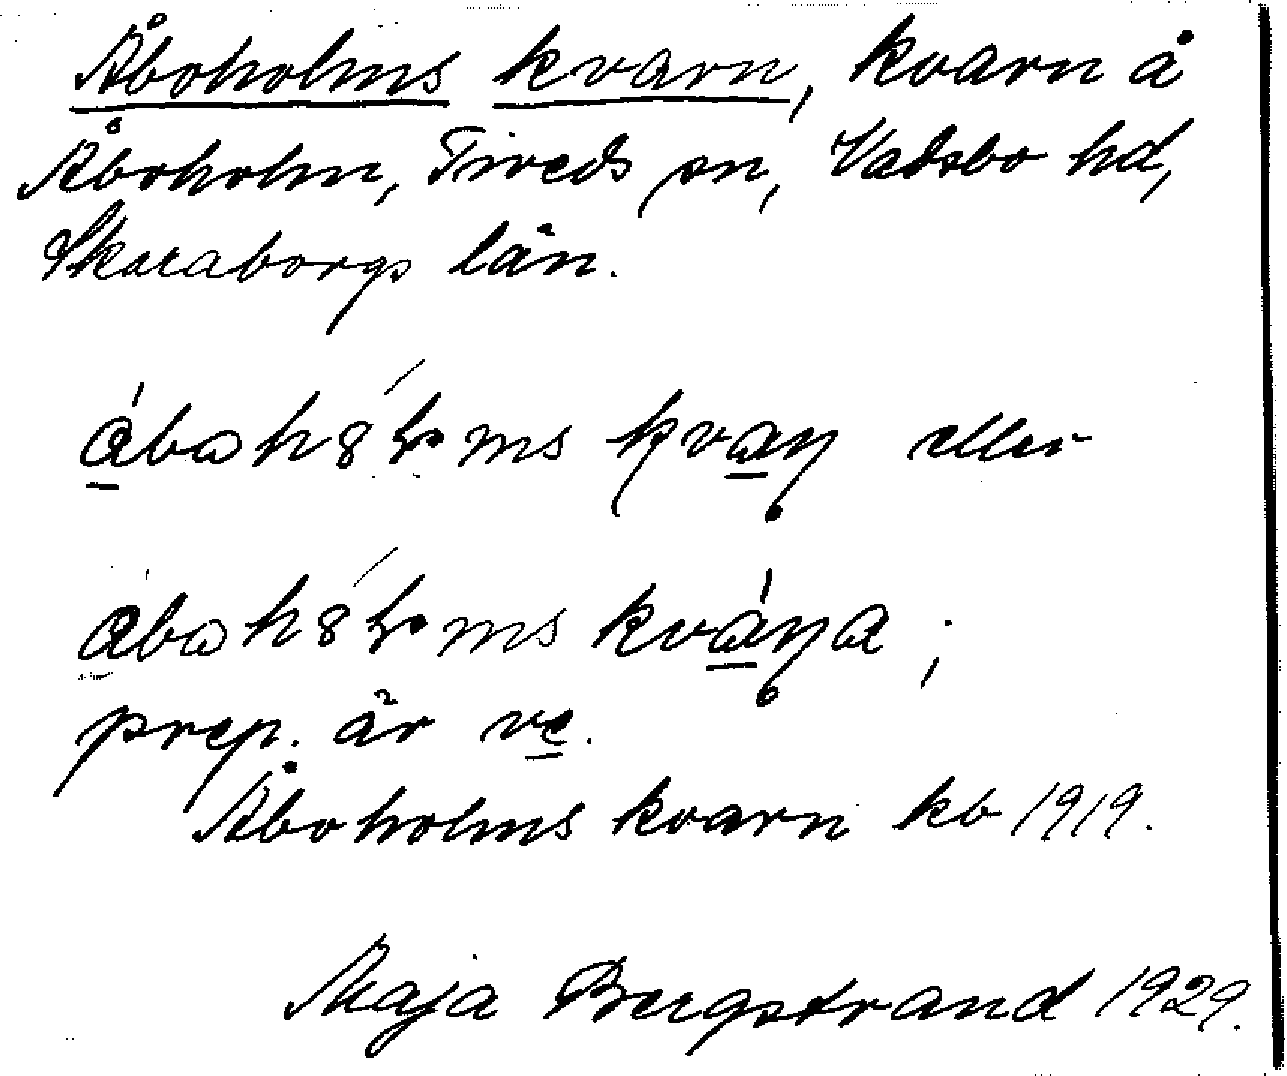 Åboholms kvarn, kvarn å
Åboholm, Tiveds sn, Vadsbo hd,
Skaraborgs län.
eller
prep. är ve.
Åboholms kvarn kb 1919.
Maja Bergstrand 1929.